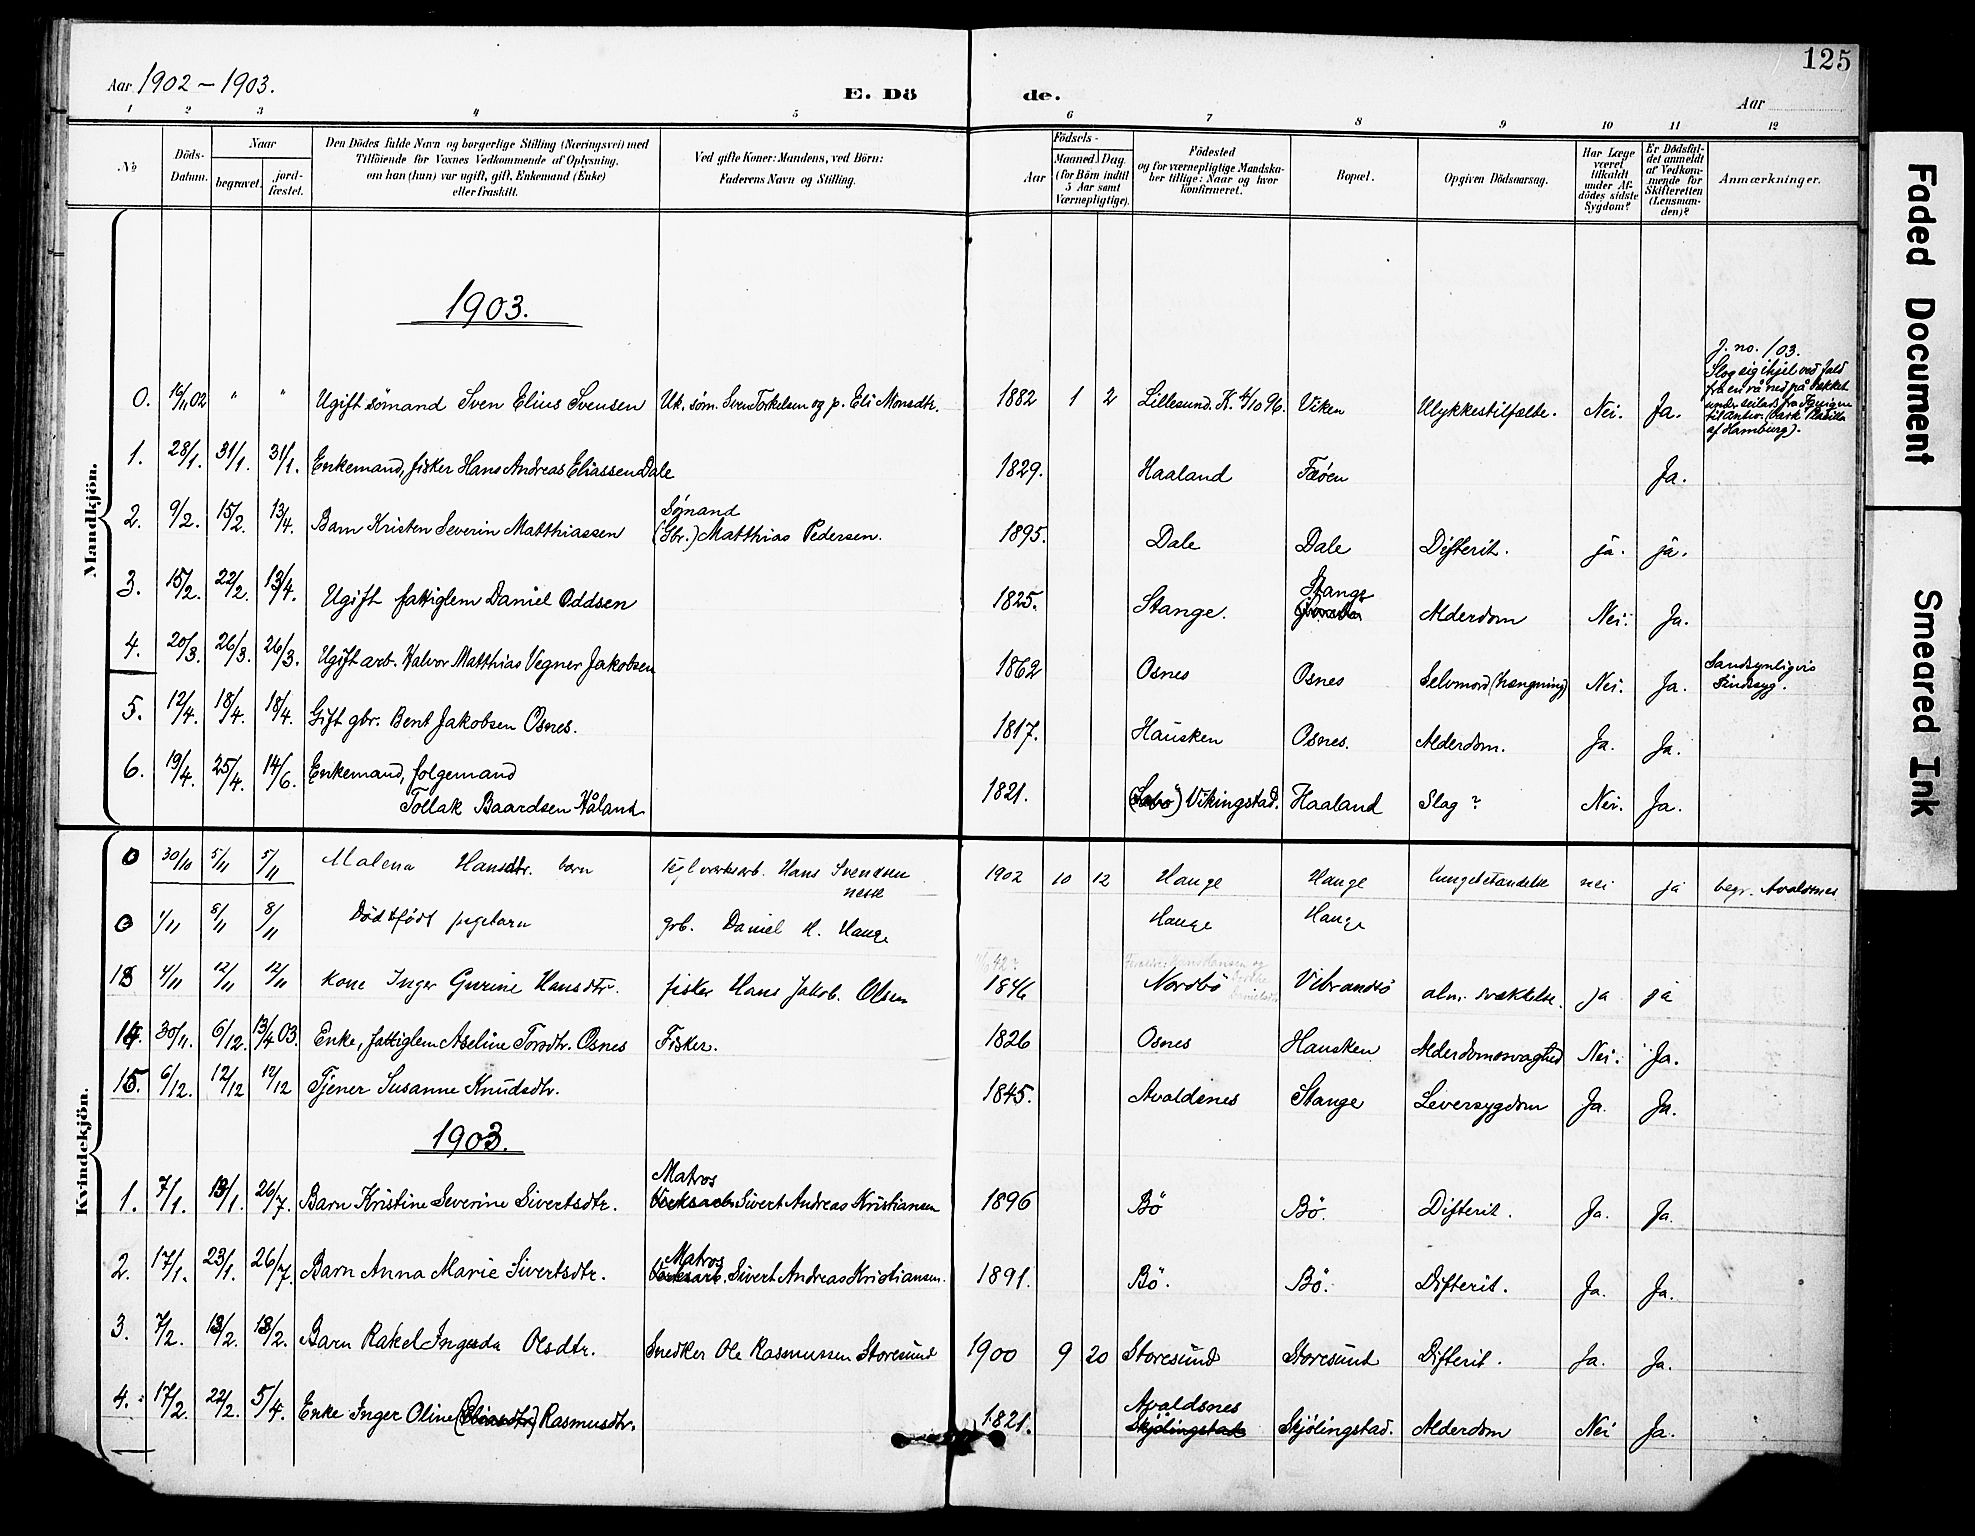 125
Aar 1902 – 1903.
E. Dö de.
Aar
1 2 3 4 5 6 7 8 9 10 11 12
No
Döds-Datum.
Naar
begravet.
jord-fæstet.
Den Dödes fulde Navn og borgerlige Stilling (Næringsvei) med
Tilföiende for Voxnes Vedkommende af Oplysning,
om han (hun) var ugift, gift, Enkemand (Enke)
eller fraskilt.
Ved gifte Koner: Mandens, ved Börn:
Faderens Navn og Stilling.
Födsels-
Aar
Maaned Dag
(for Börn indtil
5 Aar samt
Værnepligtige).
Födested
og for værnepligtige Mandska-
ber tillige: Naar og hvor
konfirmeret.
Bopæl.
Opgiven Dödsaarsag.
Har Læge
været
tilkaldt
under Af-
dödes sidste
Sygdom?
Er Dödsfal-
det anmeldt
af Vedkom-
mende for
Skifteretten
(Lensman-
den)?
Anmærkninger.
Mandkjön.
1903.
J. no. /03.
Slog sig ihjel ved fald
fra en rå ned på dækket
under seilads fra
til Antw. (Bark
af Hamburg).
0. 16/11 02 " " Ugift sömand Sven Elius Svensen Uk. söm. Sven Torkelsen og p. Eli Monsdtr. 1882 1 2 Lillesund. K. 4/10 96. Viken Ulykkestilfælde. Nei. Ja.
1. 28/1. 31/1. 31/1. Enkemand, fisker Hans Andreas Eliassen Dale 1829. Haaland Fæöen Ja.
2. 9/2. 15/2. 13/4. Barn Kristen Severin Matthiassen Sömand
(Gbr.) Matthias Pedersen. 1895. Dale Dale Difterit. ja. ja.
3. 15/2. 22/2. 13/4. Ugift fattiglem Daniel Oddsen 1825. Stange. Stange Alderdom Nei. Ja.
4. 20/3. 26/3. 26/3. Ugift arb. Halvor Matthias Vegner Jakobsen 1862 Osnes Osnes Selvmord (hængning) Nei. Ja. Sandsynligvis
Sindssyg.
5. 12/4. 18/4. 18/4. Gift gbr. Bent Jakobsen Osnes. 1817. Hausken Osnes. Alderdom. Ja. Ja.
6. 19/4. 25/4. 14/6. Enkemand, folgemand
Tollak Baardsen Håland 1821. Vikingstad. Haaland Slag? Nei. Ja.
Kvindekjön.
0 30/10 5/11 5/11 Malena Hansdtr. barn teglverksarb. Hans Svendsen
1902 10 12 Hauge Hauge lungebetændelse nei ja begr. Avaldsnes
0 1/11 8/11 8/11 Dödtfödt pigebarn grb. Daniel H. Hauge Hauge Hauge
13 4/11 12/11 12/11 Kone Inger Gurine Hansdtr. fisker Hans Jakob. Olsen 1846 Nordbö Vibrandsö alm. svækkelse. ja ja
14. 30/11. 6/12. 13/4 03. Enke, fattiglem Aseline Torsdtr. Osnes Fisker. 1826 Osnes Hausken Alderdomssvaghed Nei. Ja.
15. 6/12. 12/12 12/12 Tjener Susanne Knudsdtr. 1845. Avaldsnes Stange Leversygdom Ja. Ja.
1903.
1. 7/1. 13/1. 26/7. Barn Kristine Severine Sivertsdtr. Matros
Verksarb. Sivert Andreas Kristiansen 1896 Bö Bö. Difterit. Ja. Ja.
2. 17/1. 23/1. 26/7. Barn Anna Marie Sivertsdtr. Matros
Verksarb. Sivert Andreas Kristiansen. 1891. Bö. Bö. Difterit. Ja. Ja.
3. 7/2. 13/2. 13/2. Barn Rakel Ingerda Olsdtr. Snedker Ole Rasmussen Storesund 1900 9 20 Storesund Storesund Difterit. Ja. Ja.
4. 17/2. 22/2. 5/4. Enke Inger Oline (Eliasdtr) Rasmusdtr. 1821. Avaldsnes
Skjölingstad Skjölingstad. Alderdom Nei Ja.
Faded Document
Smeared Ink